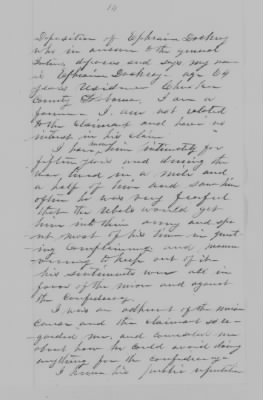 14
Deposition of Ephraim Dockery
who in answer to the general
Interr. deposes and says my name
is Ephraim Dockery age 64
years Residence Cherokee
County Alabama. I am a
farmer I am not related
to the claimant and have no
interest in his claim
I have known him intimately for
fifteen years and during the
war, lived in a mile and
a half of him and saw him
often he was very fearful
that the rebels would get
him into their army and spent
most of his time in
complaining and
to keep out of it
his sentiments were all in
favor of the union and against
the confederacy.
I was an adherent of the union
cause and the claimant so re-
garded me, and counseled me
about how he could avoid doing
anything for the confederacy
I know his public reputation